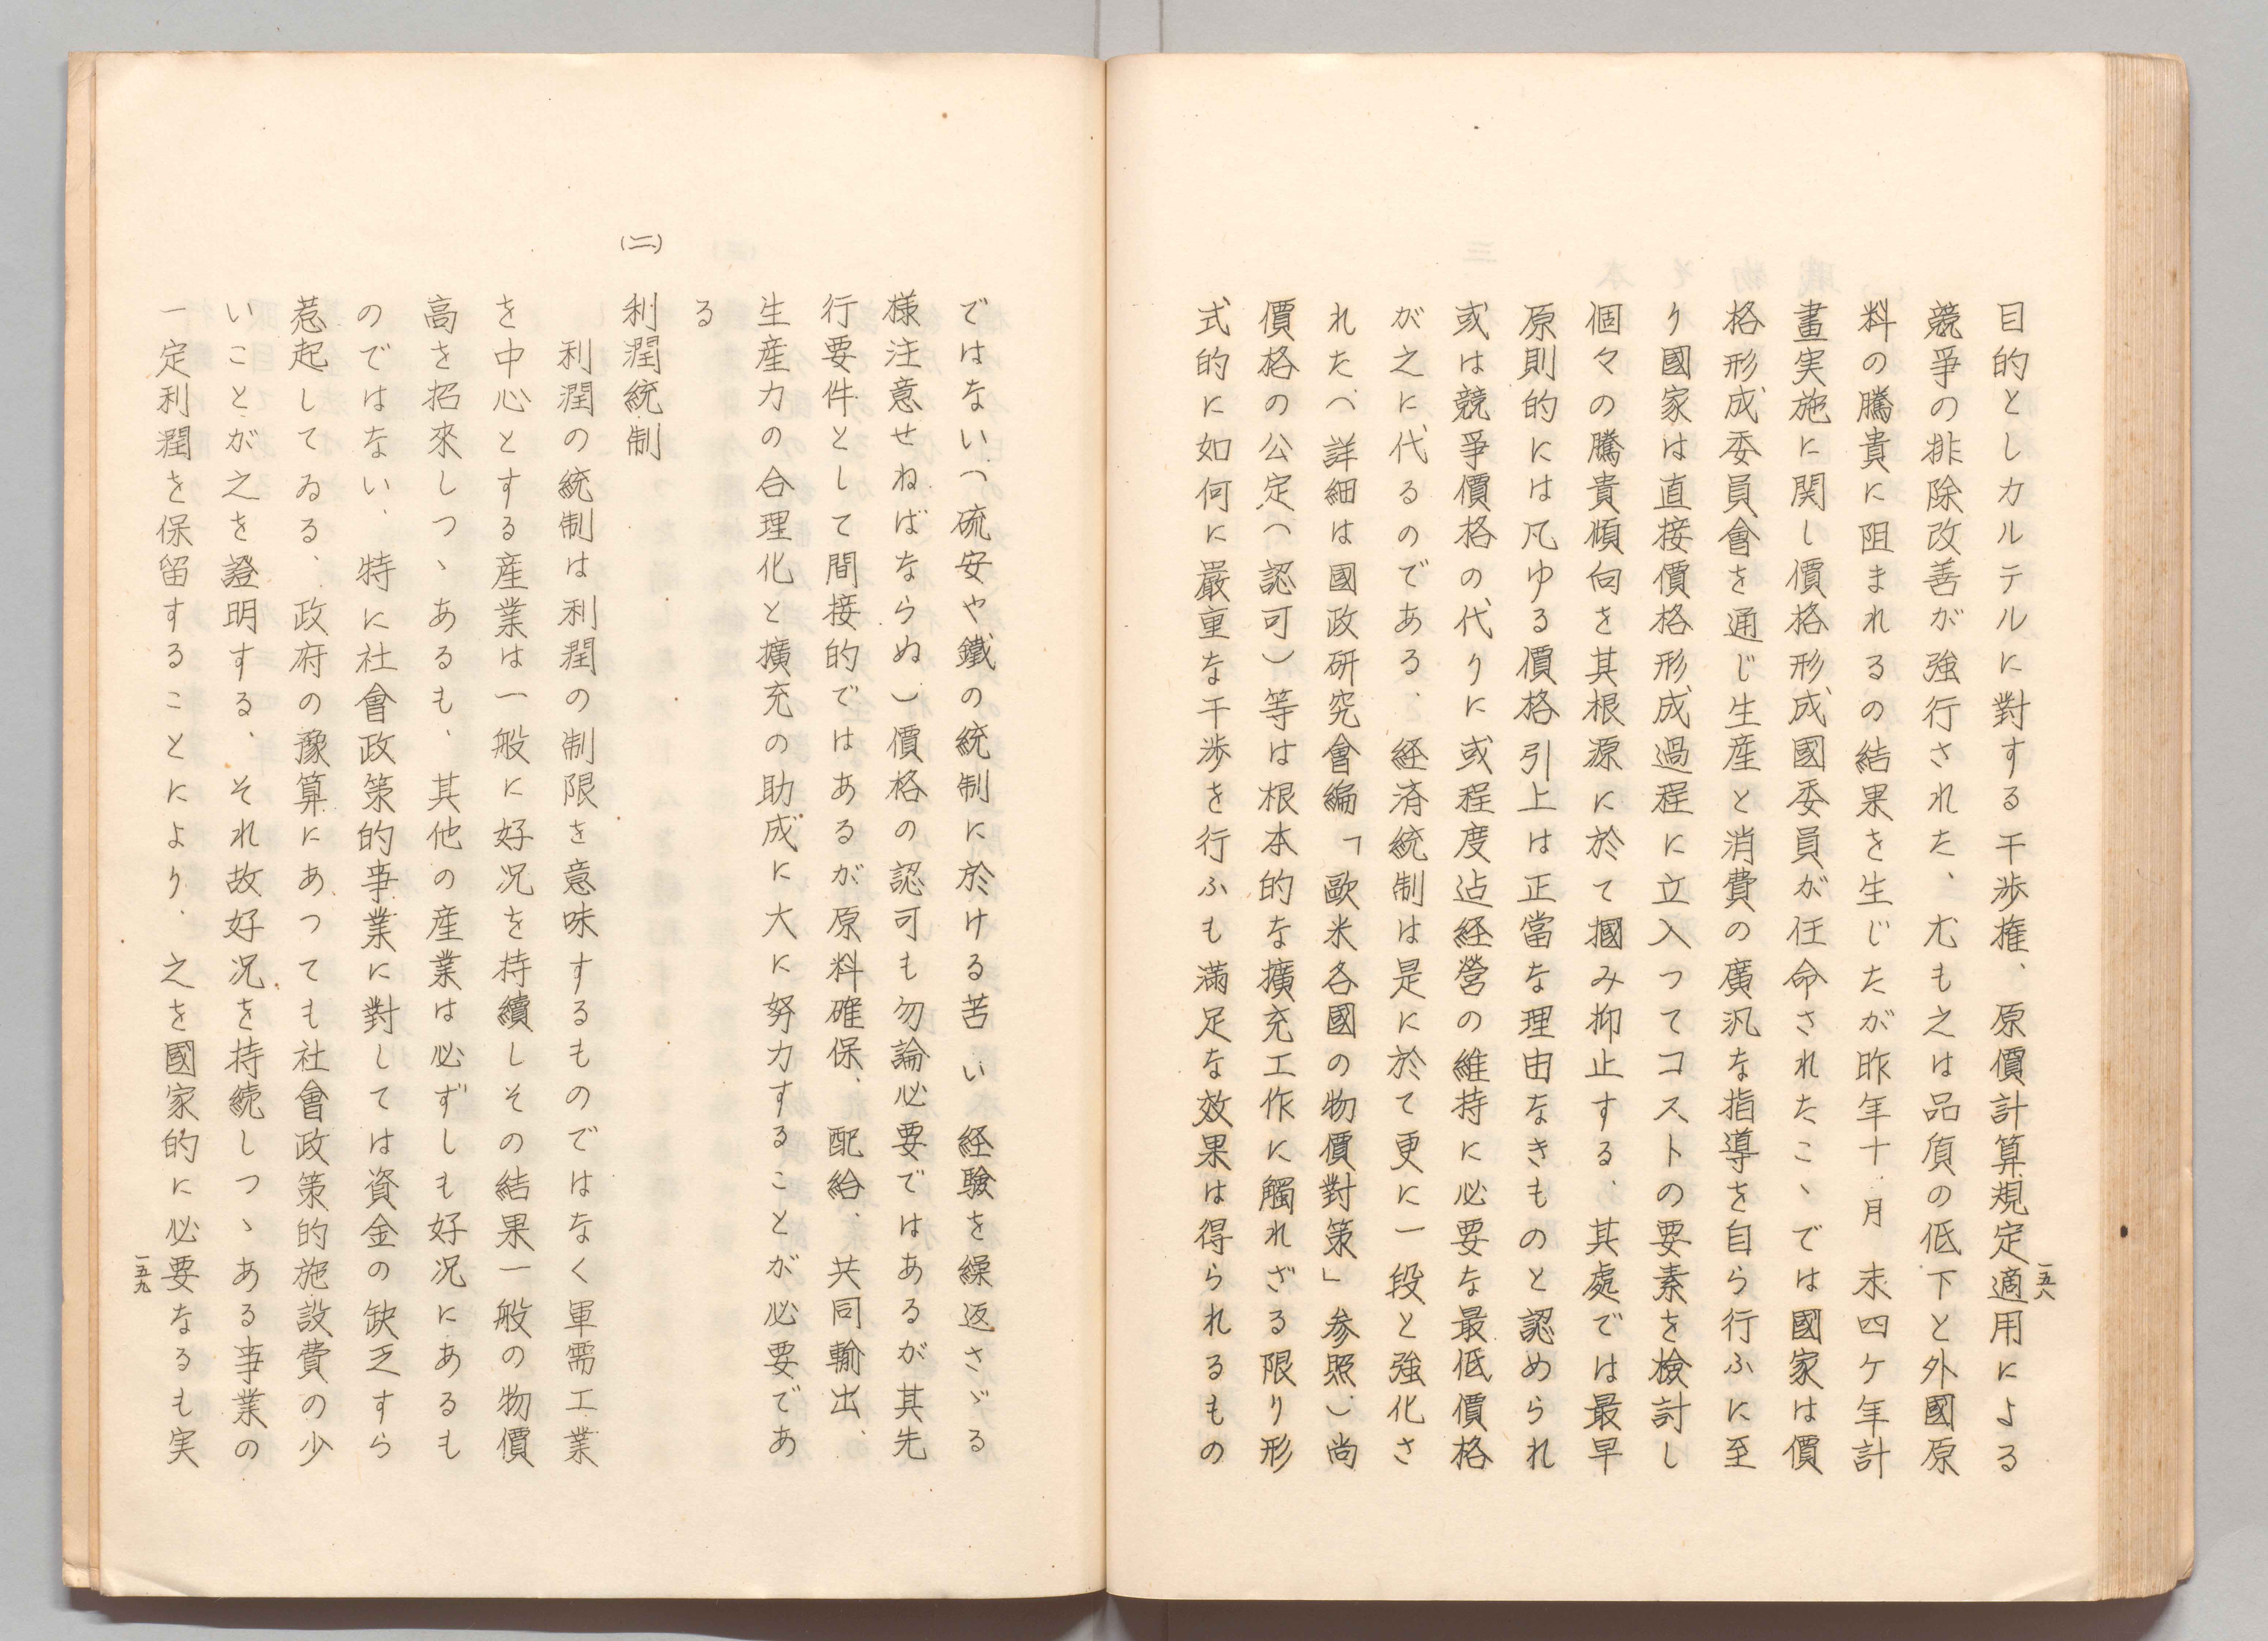 一五八
目的としカルテルに對する干渉権、原價計算規定適用による
競爭の排除改善が強行された、尤も之は品質の低下と外國原
料の騰貴に阻まれるの結果を生じたが昨年十月末四ケ年計
畫実施に関し價格形成國委員が任命されたこゝでは國家は價
格形成委員會を通じ生産と消費の廣汎な指導を自ら行ふに至
り國家は直接價格形成過程に立入つてコストの要素を檢討し
個々の騰貴傾向を其根源に於て摑み抑止する、其處では最早
原則的には凡ゆる價格引上は正當な理由なきものと認められ
或は競爭價格の代りに或程度迠経營の維持に必要な最低價格
が之に代るのである、経済統制は是に於て更に一段と強化さ
れた、(詳細は國政研究會編「歐米各國の物價對策」参照、)尚
價格の公定(認可)等は根本的な擴充工作に觸れざる限り形
式的に如何に嚴重な干渉を行ふも滿足な效果は得られるもの
ではない、(硫安や鐵の統制に於ける苦い経驗を繰返さゞる
様注意せねばならぬ)價格の認可も勿論必要ではあるが其先
行要件として間接的ではあるが原料確保、配給、共同輸出、
生産力の合理化と擴充の助成に大に努力することが必要であ
る
(二)利潤統制
利潤の統制は利潤の制限を意味するものではなく軍需工業
を中心とする産業は一般に好況を持續しその結果一般の物價
高を招來しつゝあるも、其他の産業は必ずしも好況にあるも
のではない、特に社會政策的亊業に對しては資金の缺乏すら
惹起してゐる、政府の豫算にあつても社會政策的施設費の少
いことが之を證明する、それ故好況を持続しつゝある亊業の
一定利潤を保留することにより、之を國家的に必要なるも実
一五九